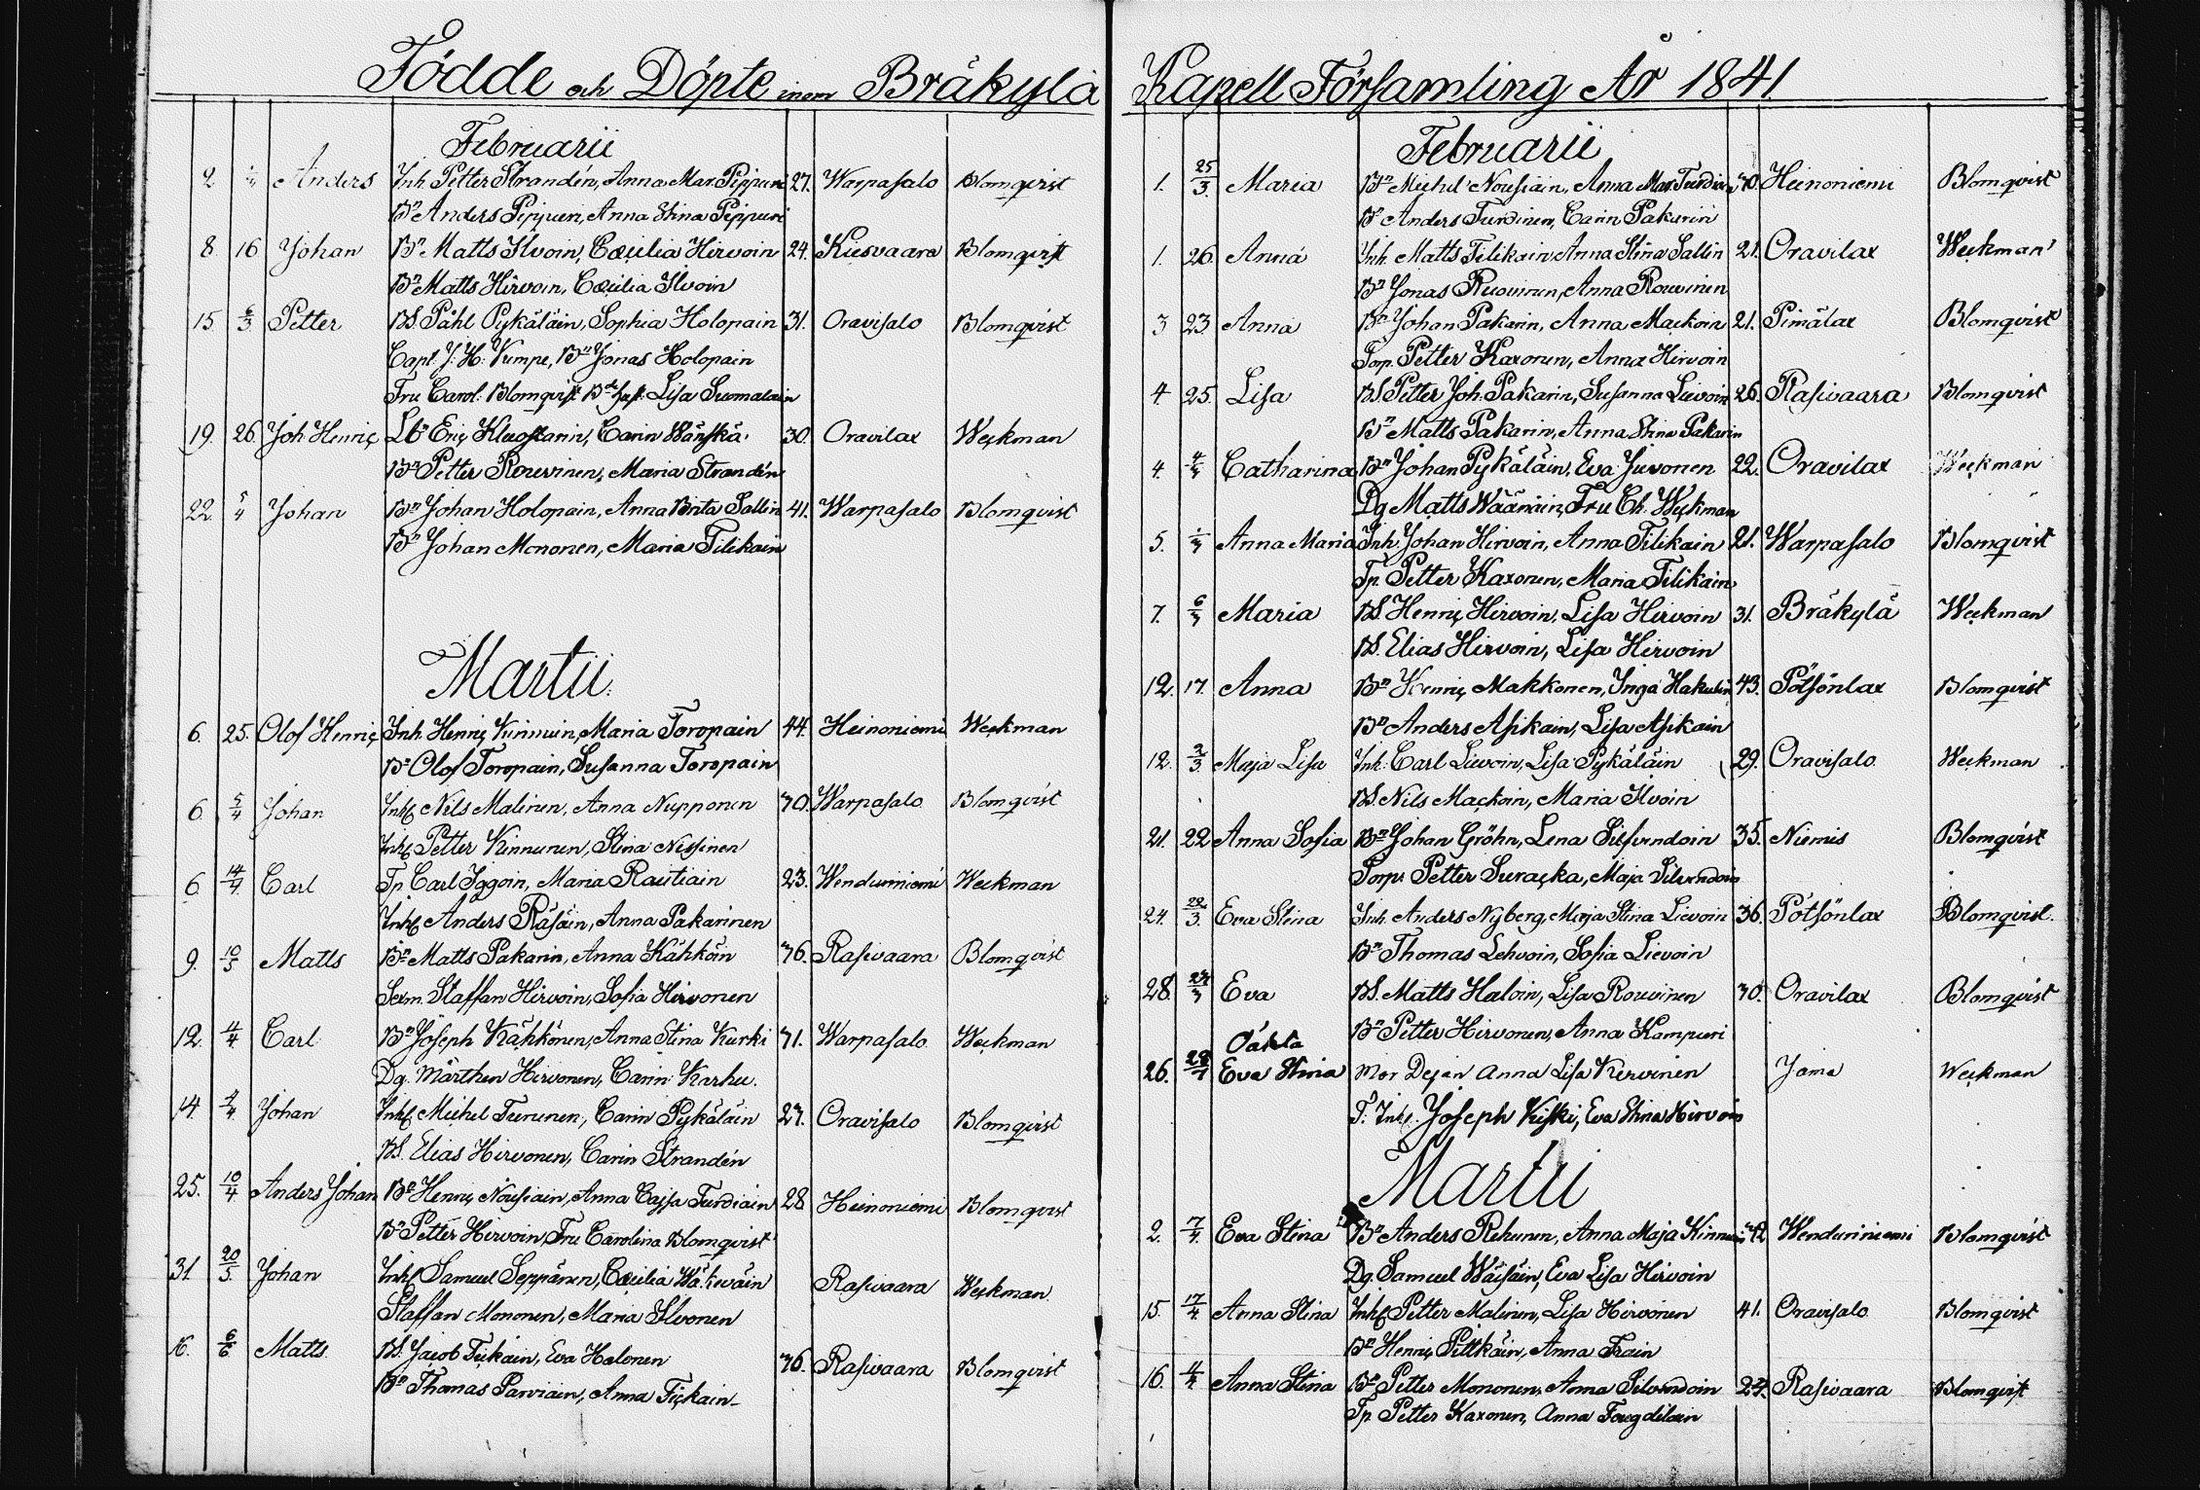 Födde och Döpte inom Bräkylä
Februarii
2 Anders Inh. Petter Strandén, Anna Mar. Pippuri 27. Warpasalo Blomqvist
Bn Anders Pippuri, Anna Stina Pippuri
8 16 Johan Bn Matts Ilvoin, Cæcilia Hirvoin 24. Kiesvaara Blomqvist
Bn Matts Hirvoin, Cæcilia Ilvoin
15 6/3 Petter BS. Påhl Pykäläin, Sophia Holopain 31. Oravisalo Blomqvist
Capt. J. H. Vumpe, Bn Jonas Holopain
Fru Carol. Blomqvist Lisa Suomalain
19. 26. Joh Henric Eric Carin Wänskä 30. Oravilax Weckman
Bn Petter Rouvinen, Maria Strandén
22. 5/4 Johan Bn Johan Holopain, Anna Brita Sallin 41. Warpasalo Blomqvist
Bn Johan Mononen, Maria Tilikain
Martii.
6. 25. Olof Henric Inh. Henric Maria Toropain 44. Heinoniemi Weckman
Bn Olof Toropain, Susanna Toropain
6 5/4 Johan Inh. Nils Malinen, Anna Nupponen 30. Warpasalo Blomqvist
Inh. Petter Kinnunen, Stina Nissinen
6 14/4 Carl Tp. Carl Iggoin, Maria Rautiain 23. Wenduriniemi Weckman
Inh. Anders Räsäin, Anna Pakarinen
9. 10/3 Matts Bn Matts Pakarin, Anna Kähköin 36. Rasivaara Blomqvist
Sexm. Staffan Hirvoin, Sofia Hirvonen
12. 4/4 Carl Bn Joseph Kähkönen, Anna Stina Kurki 31. Warpasalo Weckman
Dg. Mårthen Hirvonen, Carin Karhu.
14. 4/4 Johan Inh. Michel Turunen, Carin Pykäläin 27. Oravisalo Blomqvist
BS. Elias Hirvonen, Carin Strandén
25. 10/4 Anders Johan Bn Henric Nousiain, Anna Cajsa Turdiain 28 Heinoniemi Blomqvist
Bn Petter Hirvoin, Fru Carolina Blomqvist
31. 20/5 Johan Inh. Samuel Seppänen, Cæcilia Rasivaara Weckman
Staffan Mononen, Maria Ilvonen
16. 6/6 Matts BS. Jacob Tickain, Eva Halonen 36. Rasivaara Blomqvist
Bn Thomas Parviain, Anna Tickain
Kapell Församling År 1841.
Februarii
1. 25/3 Maria Bn Michel Nousiäin, Anna Mar. Turdin 40. Heinoniemi Blomqvist
Bn Anders Turdinen, Carin Pakarin
1. 26. Anna Inh. Matts Tilikain, Anna Stina Sallin 21. Oravilax Weckman
Bn Jonas Anna Rouvinen
3 23 Anna Bn Johan Pakarin, Anna Mackoin 21. Pimälax Blomqvist
Torp. Petter Kaxonen, Anna Hirvoin
4. 25. Lisa BS Petter Joh. Pakarin, Susanna Lievoin 26. Rasivaara Blomqvist
Bn Matts Pakarin, Anna Stina Pakarin
4. Catharina Bn Johan Pykäläin, Eva Juvonen 22. Oravilax Weckman
Dg Matts Wäänäin, Fru Ch. Weckman
5. Anna Maria Inh. Johan Hirvoin, Anna Tilikain 21. Warpasalo Blomqvist
Tp. Petter Kaxonen, Maria Tilikain
7. 6/3 Maria BS. Henric Hirvoin, Lisa Hirvoin 31. Bräkylä Weckman
BS. Elias Hirvoin, Lisa Hirvoin
12. 17. Anna Bn Henric Makkonen, Inga Hakulin 43. Pötsönlax Blomqvist
Bn Anders Asikain, Lisa Asikain
12. 2/3 Maja Lisa Inh. Carl Lievoin, Lisa Pykäläin 29. Oravisalo Weckman
BS. Nils Mackoin, Maria Ilvoin
21. 22 Anna Sofia Bn Johan Gröhn, Lena Silfvendoin 35. Niemis Blomqvist
Torp. Petter Suracka, Maja Silvendoin
24. 22/3. Eva Stina Inh. Anders Nyberg, Maja Stina Lievoin 36. Pötsönlax Blomqvist.
Bn Thomas Lehvoin, Sofia Lievoin
28. Eva BS. Matts Haloin, Lisa Rouvinen 30. Oravilax Blomqvist
Bn Petter Hirvonen, Anna Kampuri
Oäkta
26. Eva Stina Mor Dejan Anna Lisa Kervinen Jama Weckman
T. Inh. Joseph Kiski, Eva Stina Hirvoin
Martii
2. 7/4. Eva Stina Bn Anders Rehunen, Anna Maja Kinnunen 42 Wenduriniemi Blomqvist
Dg. Samuel Wäisäin, Eva Lisa Hirvoin
15. 17/4 Anna Stina Inh. Petter Malinen, Lisa Hirvonen 41. Oravisalo Blomqvist
Bn Henric Pittkäin, Anna Train
16. 4/4 Anna Stina Bn Petter Mononen, Anna Silvendoin 24. Rasivaara Blomqvist
Tp. Petter Kaxonen, Anna Fougdilain